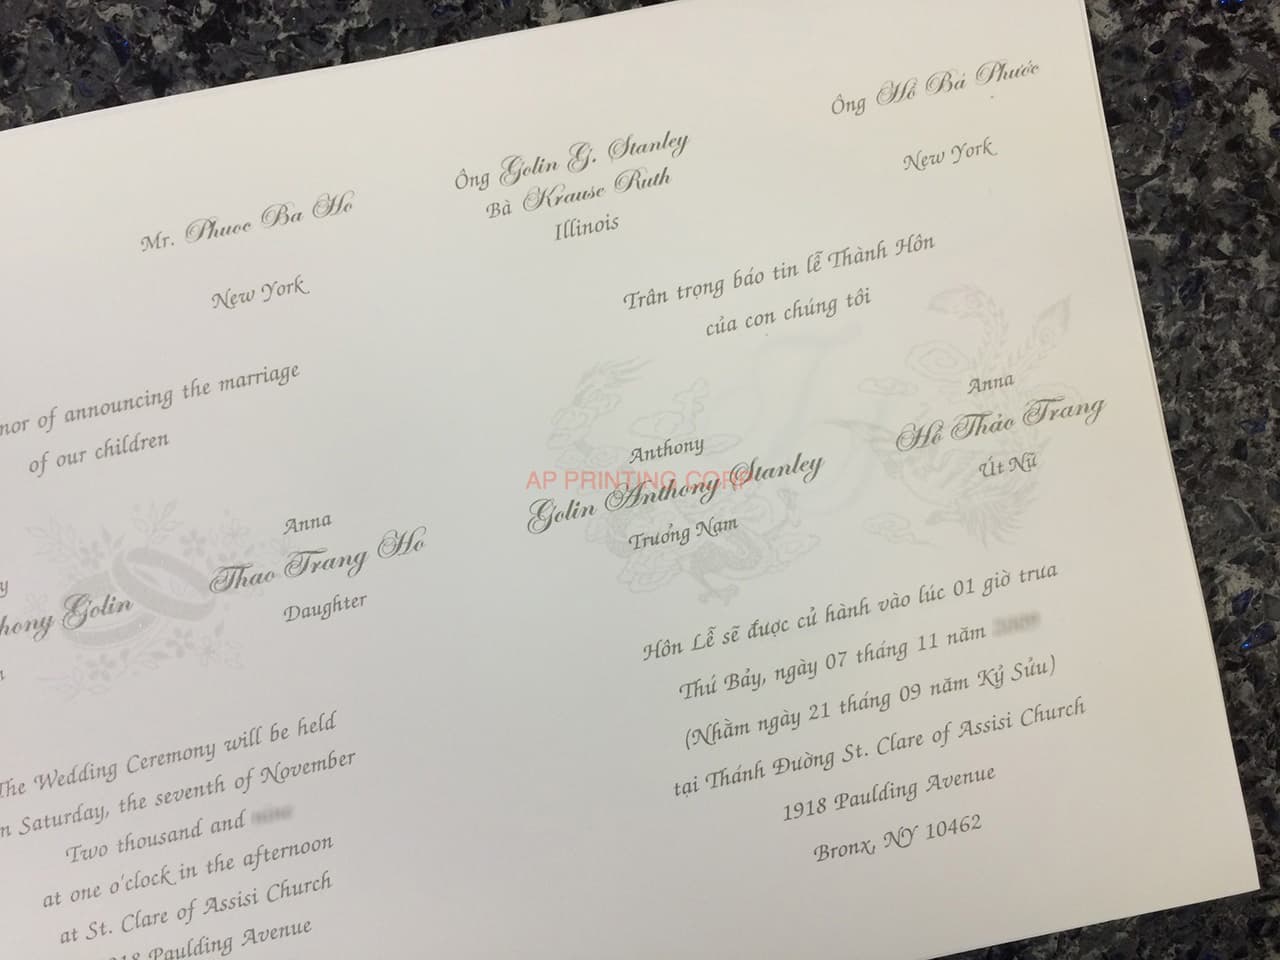 Mr. Phuoc Ba Ho
New York
of announcing the marriage
of our children
Anna
Thao Trang Ho
Daughter
Golin
The Wedding Ceremony will be held
Saturday, the seventh of November
Two thousand and
at one o'clock in the afternoon
at St. Clare of Assisi Church
Paulding Avenue
Ông Golin G. Stanley
Bà Krause Ruth
Illinois
Ông Hồ Bá Phước
New York
Trân trọng báo tin lễ Thành Hôn
của con chúng tôi
Anthony
Golin Anthony Stanley
Trưởng Nam
Anna
Hồ Thảo Trang
Út Nữ
AP PRINTING CORP
Hôn Lễ sẽ được cử hành vào lúc 01 giờ trưa
Thứ Bảy, ngày 07 tháng 11 năm
(Nhằm ngày 21 tháng 09 năm Kỷ Sửu)
tại Thánh Đường St. Clare of Assisi Church
1918 Paulding Avenue
Bronx, NY 10462